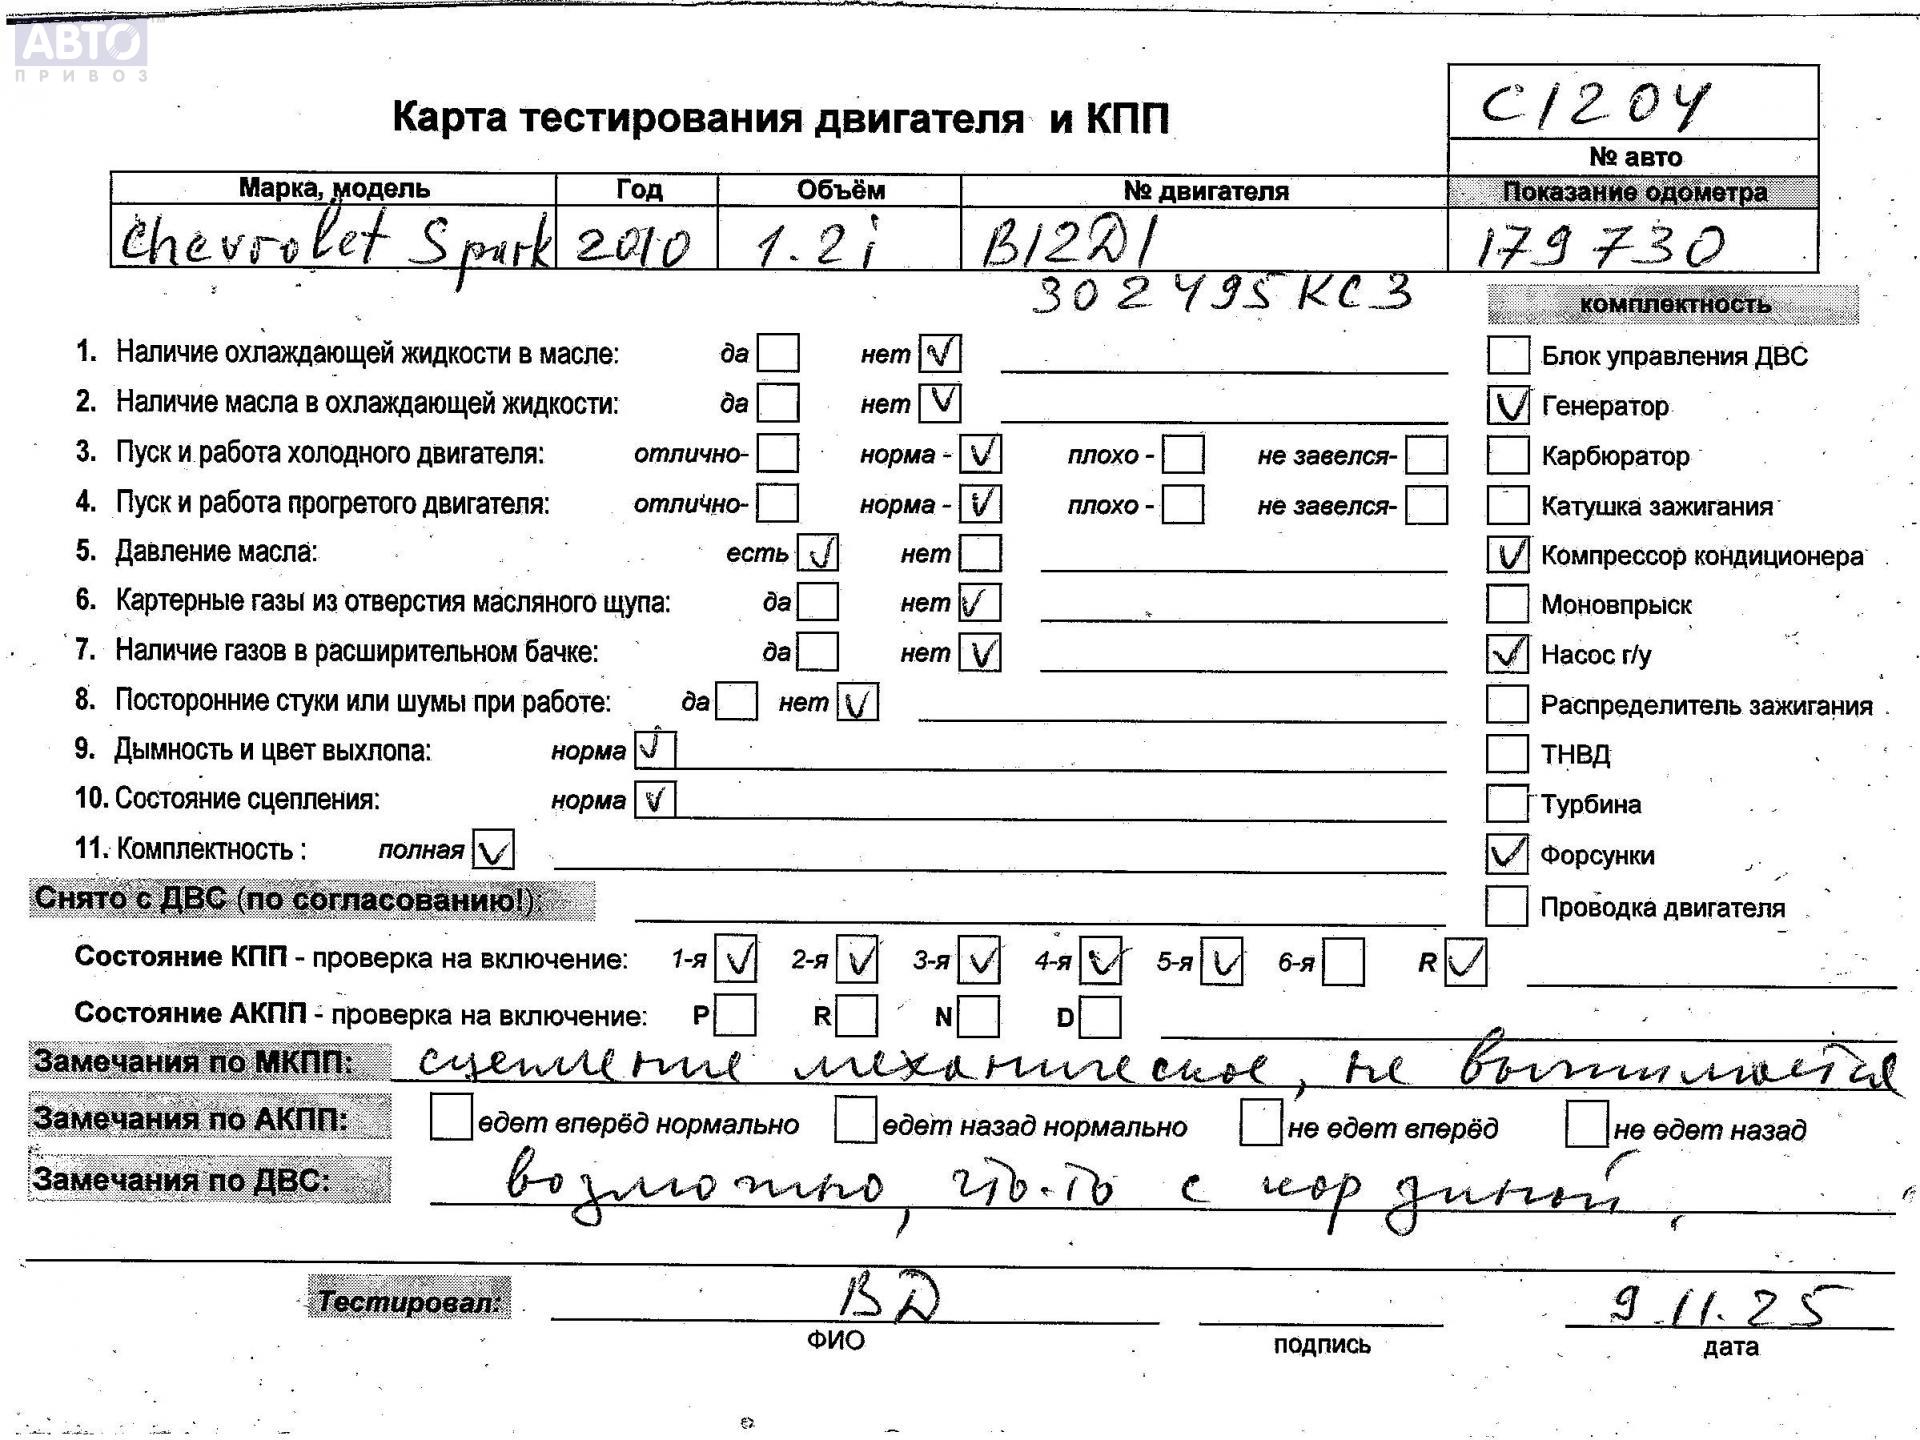 АВТО
ПРИВОЗ
Карта тестирования двигателя и КПП
С1204
№ авто
Марка, модель Год Объём № двигателя Показание одометра
Chevrolet Spark 2010 1.2i B12D1 179730
302495KC3
комплектность
1. Наличие охлаждающей жидкости в масле: да нет Блок управления ДВС
2. Наличие масла в охлаждающей жидкости: да нет Генератор
3. Пуск и работа холодного двигателя: отлично- норма - плохо - не завелся- Карбюратор
4. Пуск и работа прогретого двигателя: отлично- норма - плохо - не завелся- Катушка зажигания
5. Давление масла: есть нет Компрессор кондиционера
6. Картерные газы из отверстия масляного щупа: да нет Моновпрыск
7. Наличие газов в расширительном бачке: да нет Насос г/у
8. Посторонние стуки или шумы при работе: да нет Распределитель зажигания
9. Дымность и цвет выхлопа: норма ТНВД
10. Состояние сцепления: норма Турбина
11. Комплектность : полная Форсунки
Снято с ДВС (по согласованию!): Проводка двигателя
Состояние КПП - проверка на включение: 1-я 2-я 3-я 4-я 5-я 6-я R
Состояние АКПП - проверка на включение: P R N D
Замечания по МКПП: сцепление механическое, не выжимается
Замечания по АКПП: едет вперёд нормально едет назад нормально не едет вперёд не едет назад
Замечания по ДВС: возможно, что-то с корзиной.
Тестировал: ВД 9.11.25
ФИО подпись дата